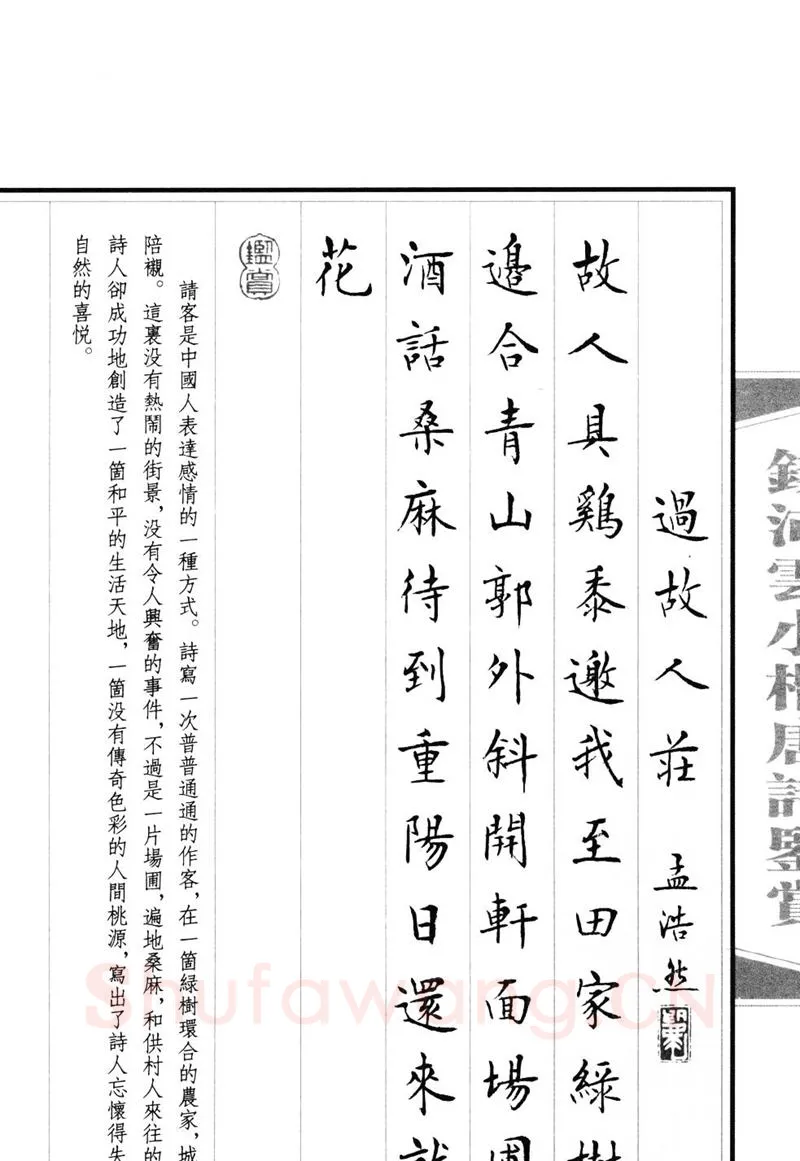 過故人莊 孟浩然
故人具鷄黍邀我至田家綠樹
邊合青山郭外斜開軒面場圃
酒話桑麻待到重陽日還來就
花
鑑賞
請客是中國人表達感情的一種方式。詩寫一次普普通通的作客，在一箇綠樹環合的農家，城
陪襯。這裏没有熱鬧的街景，没有令人興奮的事件，不過是一片場圃，遍地桑麻，和供村人來往的
詩人卻成功地創造了一箇和平的生活天地，一箇没有傳奇色彩的人間桃源，寫出了詩人忘懷得失
自然的喜悦。
河雲小楷唐詩鑒賞
Shufawang.CN